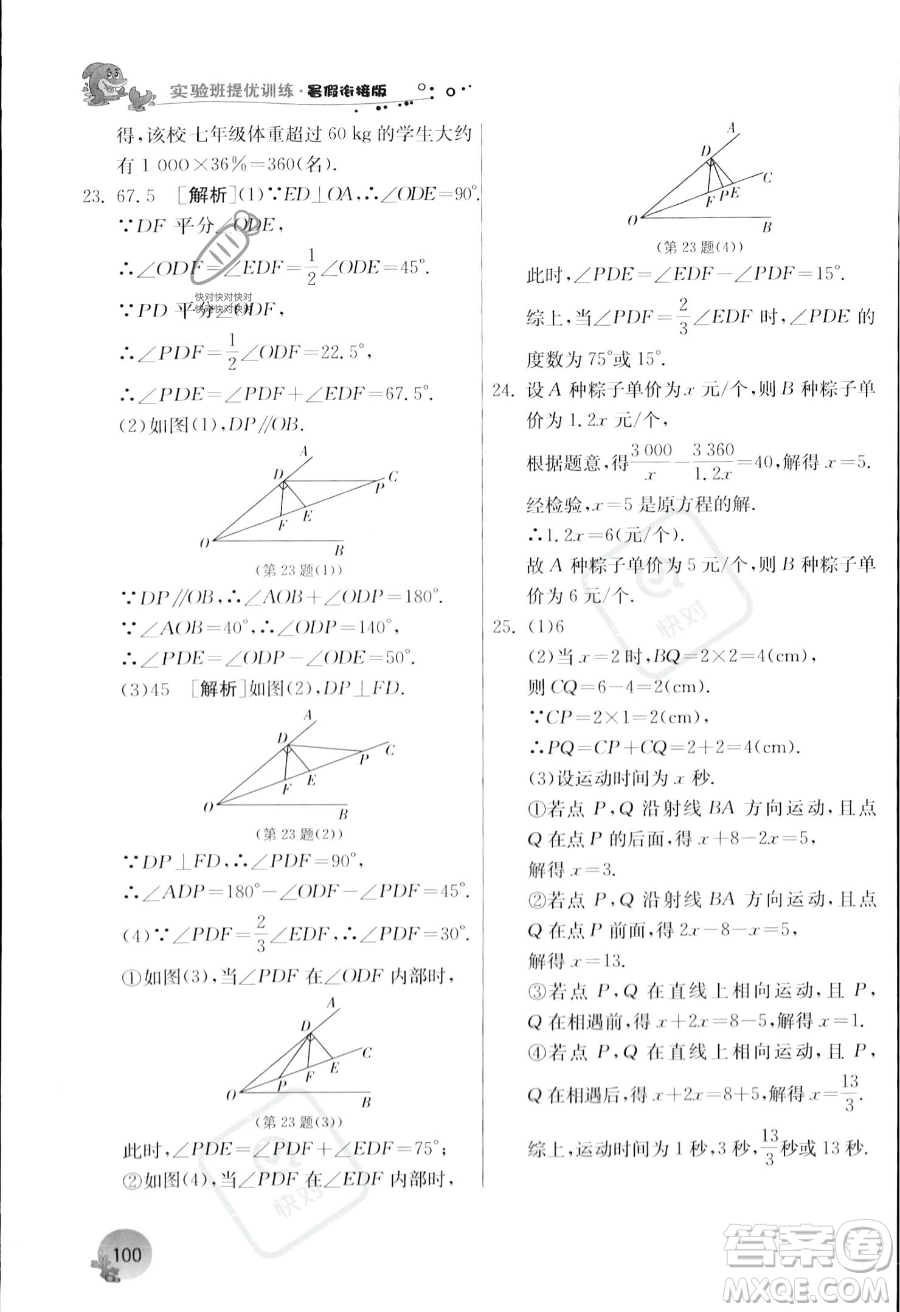 实验班提优训练·暑假衔接版
得,该校七年级体重超过 60 kg 的学生大约
有 1 000×36%=360(名).
23. 67.5 [解析](1)∵ED⊥OA,∴∠ODE=90°.
∵DF 平分∠ODE,
∴∠ODF=∠EDF=1/2∠ODE=45°.
∵PD 平分∠ODF,
快对快对快对
快对快对快对
∴∠PDF=1/2∠ODF=22.5°,
∴∠PDE=∠PDF+∠EDF=67.5°.
(2)如图(1),DP∥OB.
A
D
C
P
F
E
O
B
(第 23 题(1))
∵DP∥OB,∴∠AOB+∠ODP=180°.
∵∠AOB=40°,∴∠ODP=140°,
∴∠PDE=∠ODP-∠ODE=50°.
(3)45 [解析]如图(2),DP⊥FD.
A
D
P
C
F
E
O
B
(第 23 题(2))
∵DP⊥FD,∴∠PDF=90°,
∴∠ADP=180°-∠ODF-∠PDF=45°.
(4)∵∠PDF=2/3∠EDF,∴∠PDF=30°.
①如图(3),当∠PDF 在∠ODF 内部时,
A
D
C
P
F
E
O
B
(第 23 题(3))
此时,∠PDE=∠PDF+∠EDF=75°;
②如图(4),当∠PDF 在∠EDF 内部时,
A
D
C
F
P
E
O
B
(第 23 题(4))
此时,∠PDE=∠EDF-∠PDF=15°.
综上,当∠PDF=2/3∠EDF 时,∠PDE 的
度数为 75°或 15°.
24. 设 A 种粽子单价为 x 元/个,则 B 种粽子单
价为 1.2x 元/个,
根据题意,得3 000/x-3 360/1.2x=40,解得 x=5.
经检验,x=5 是原方程的解.
∴1.2x=6(元/个).
故 A 种粽子单价为 5 元/个,则 B 种粽子单
价为 6 元/个.
25. (1)6
(2)当 x=2 时,BQ=2×2=4(cm),
则 CQ=6-4=2(cm).
∵CP=2×1=2(cm),
∴PQ=CP+CQ=2+2=4(cm).
(3)设运动时间为 x 秒.
①若点 P,Q 沿射线 BA 方向运动,且点
Q 在点 P 的后面,得 x+8-2x=5,
解得 x=3.
②若点 P,Q 沿射线 BA 方向运动,且点
Q 在点 P 前面,得 2x-8-x=5,
解得 x=13.
③若点 P,Q 在直线上相向运动,且 P,
Q 在相遇前,得 x+2x=8-5,解得 x=1.
④若点 P,Q 在直线上相向运动,且 P,
Q 在相遇后,得 x+2x=8+5,解得 x=13/3.
综上,运动时间为 1 秒,3 秒,13/3秒或 13 秒.
快对
快对
100
答案卷
MXQE.COM